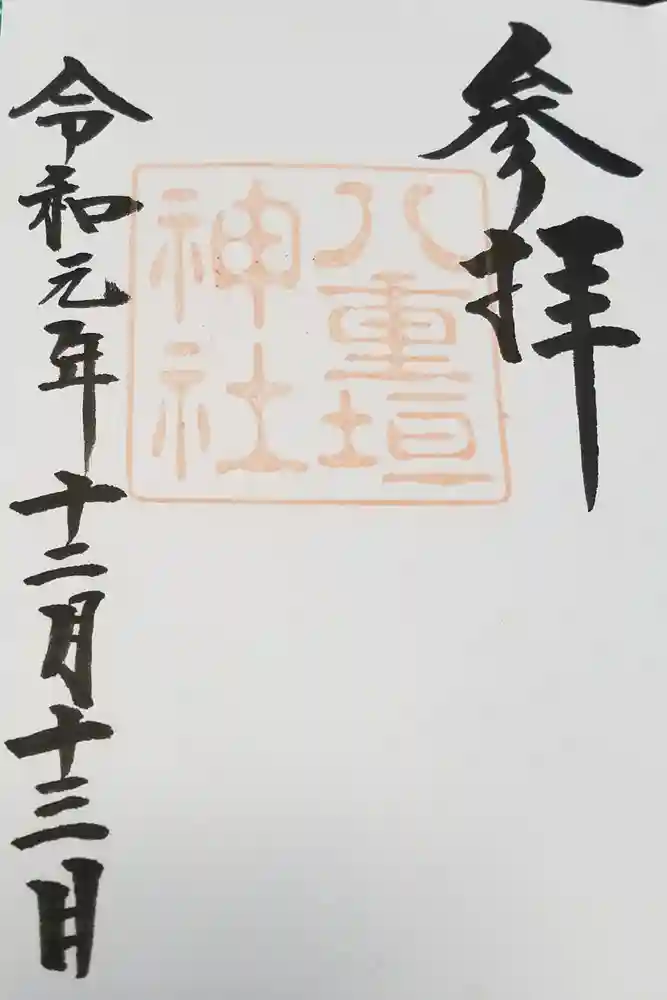 参拝
八重垣
神社
令和元年十二月十三日